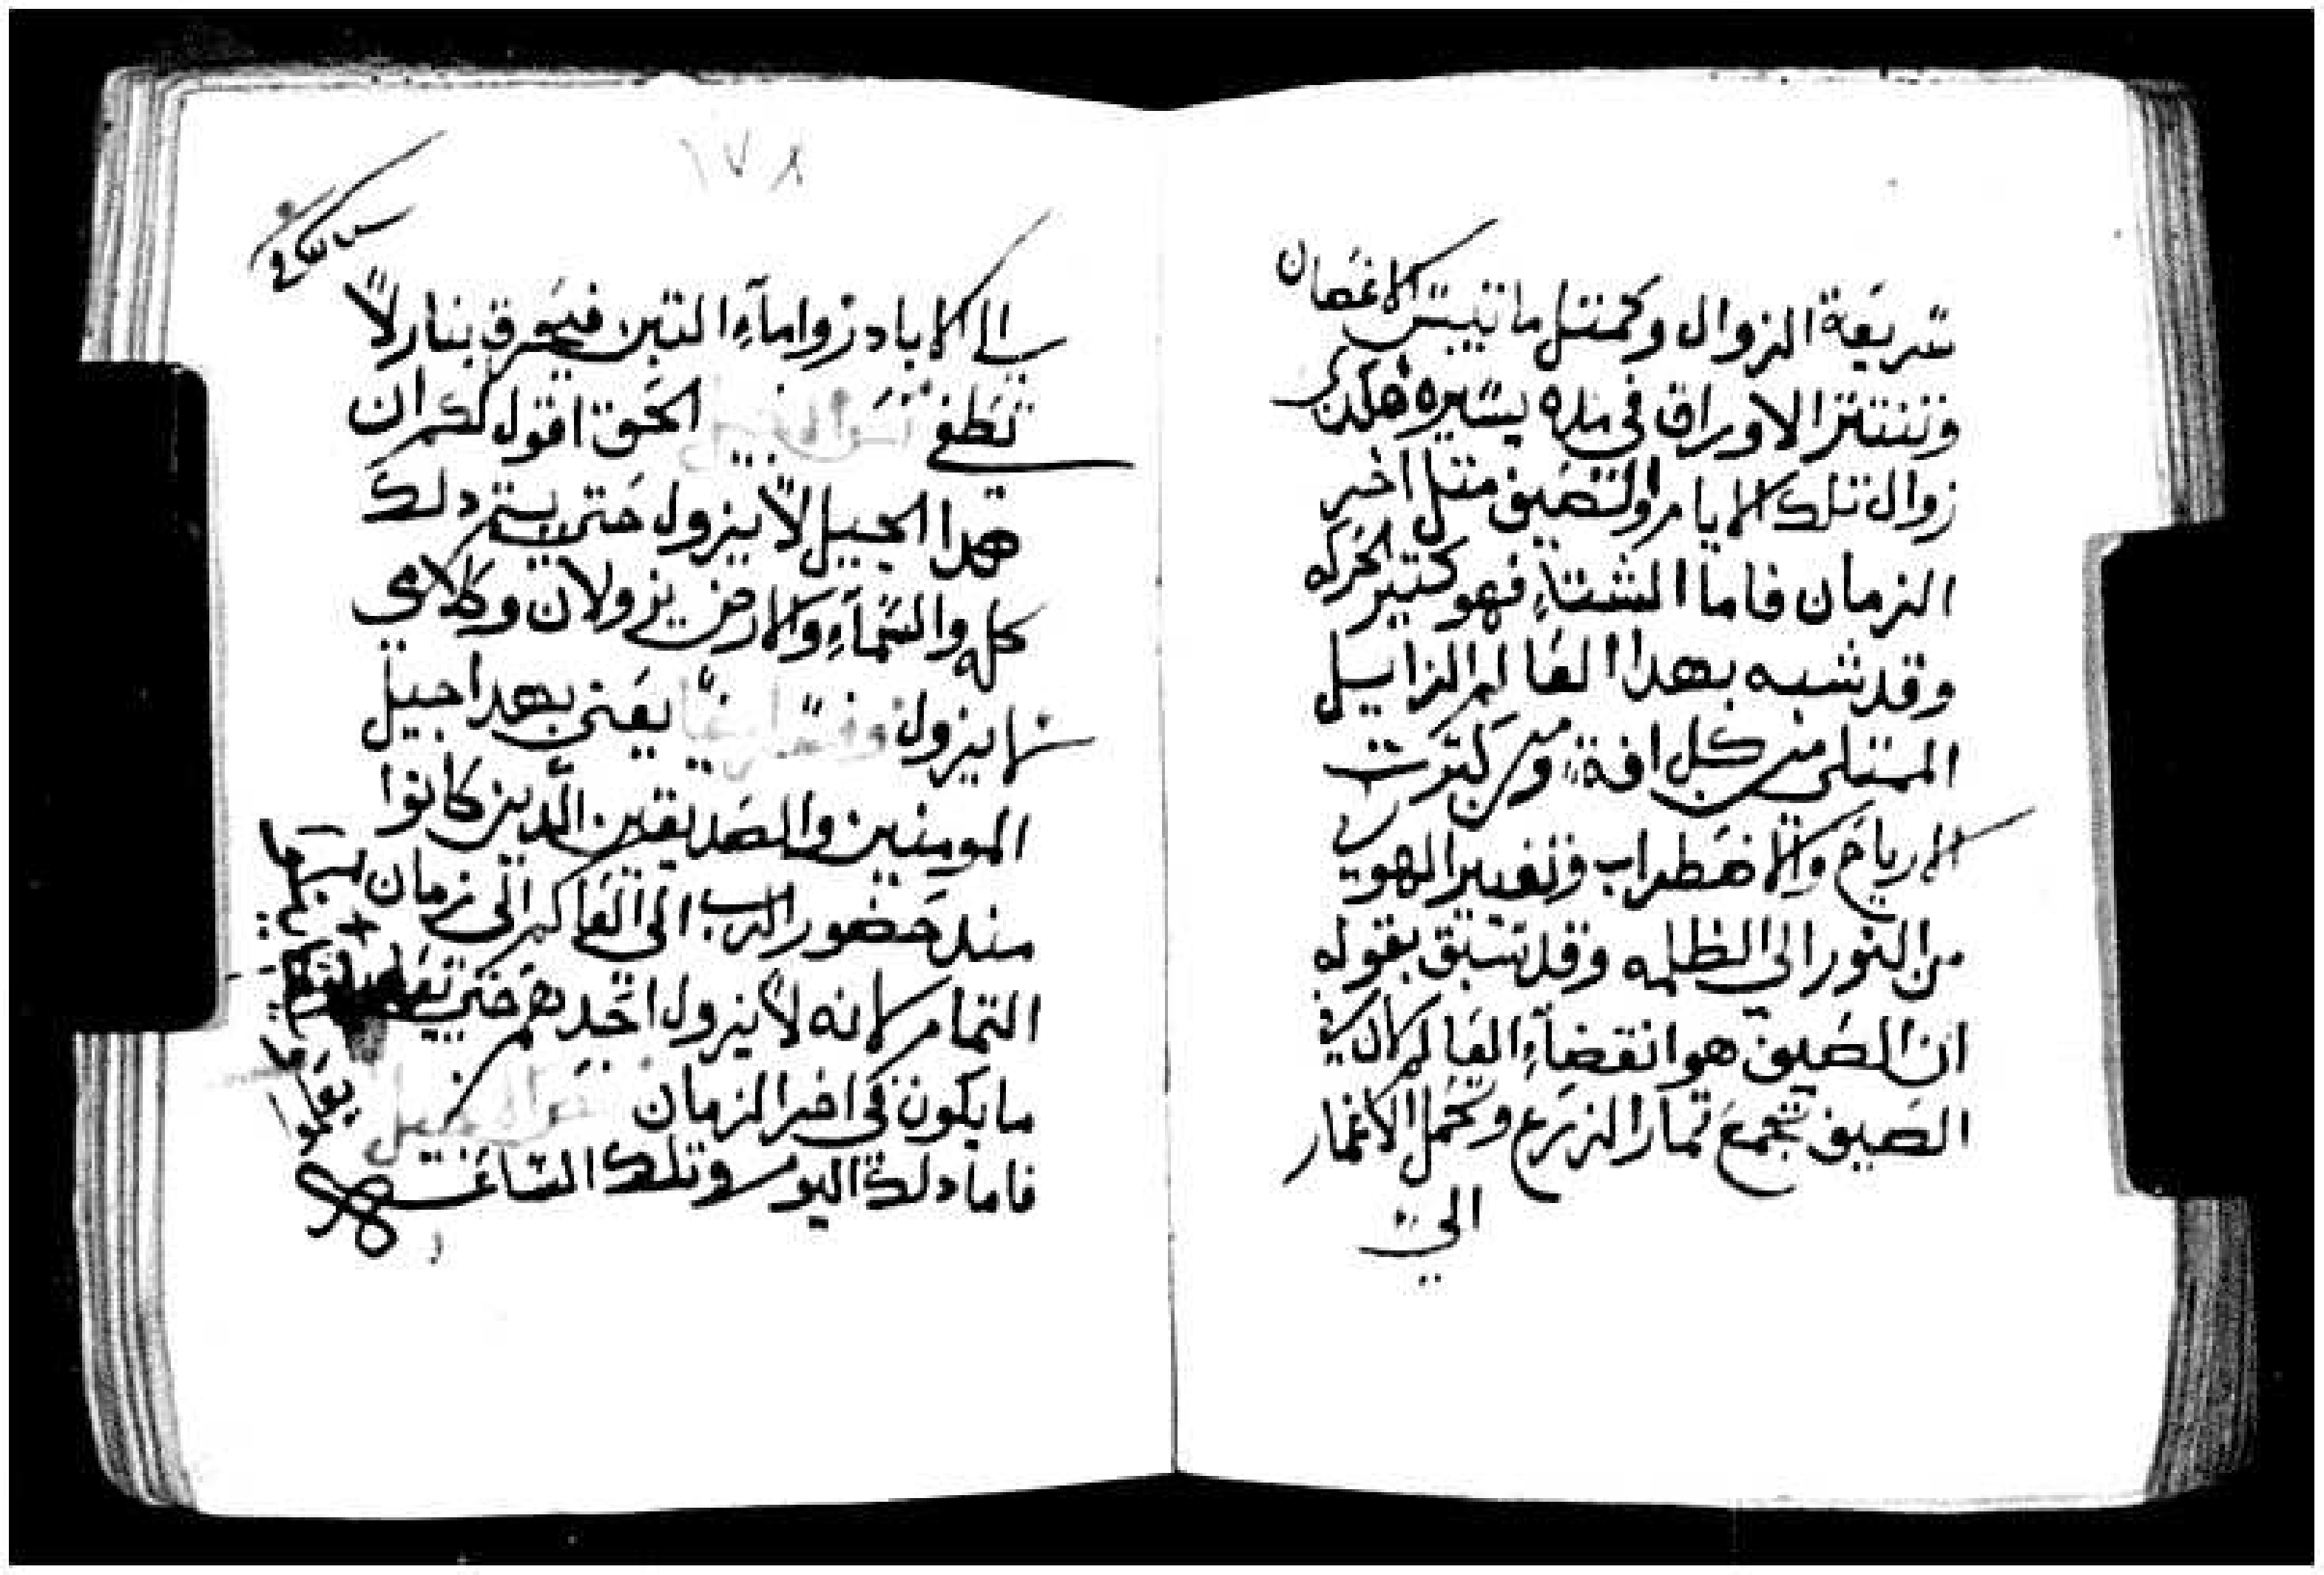 سريعة الزوال وكمتل ما تيبس الاغصان
وتنتتر الاوراق في مده يسيره هكدى
زوال تلك الايام والصيف متل اخير
الزمان فاما الشتاءِ فهو كتير الحركه
وقد شبه بهدا العالم الزايل
الممتلى من كل افة ومن كترت
الارياح والاضطراب وتغيير الهوى
من النور الي الظلمه وقد سبق بقوله
ان الصيف هو انقضاءِ العالم لان في
الصيف تجمع تمار الزرع وتحمل الاغمار
الي
١٧٨
الي الاباد رواماءِ التبن فيحرق بنار لا
تطفى الحق اقول لكم ان
هدا الجيل لا يزول حتى يتم دلك
كله والسماءِ والارض يزولان وكلامي
لا يزول يعنى بهدا جيل
المومنين والصديقين الدين كانوا
مند حضور الرب الى العالم الى زمان
التمام لانه لا يزول احدهم حتى
ما يكون في اخر الزمان
فاما دلك اليوم وتلك الساعة